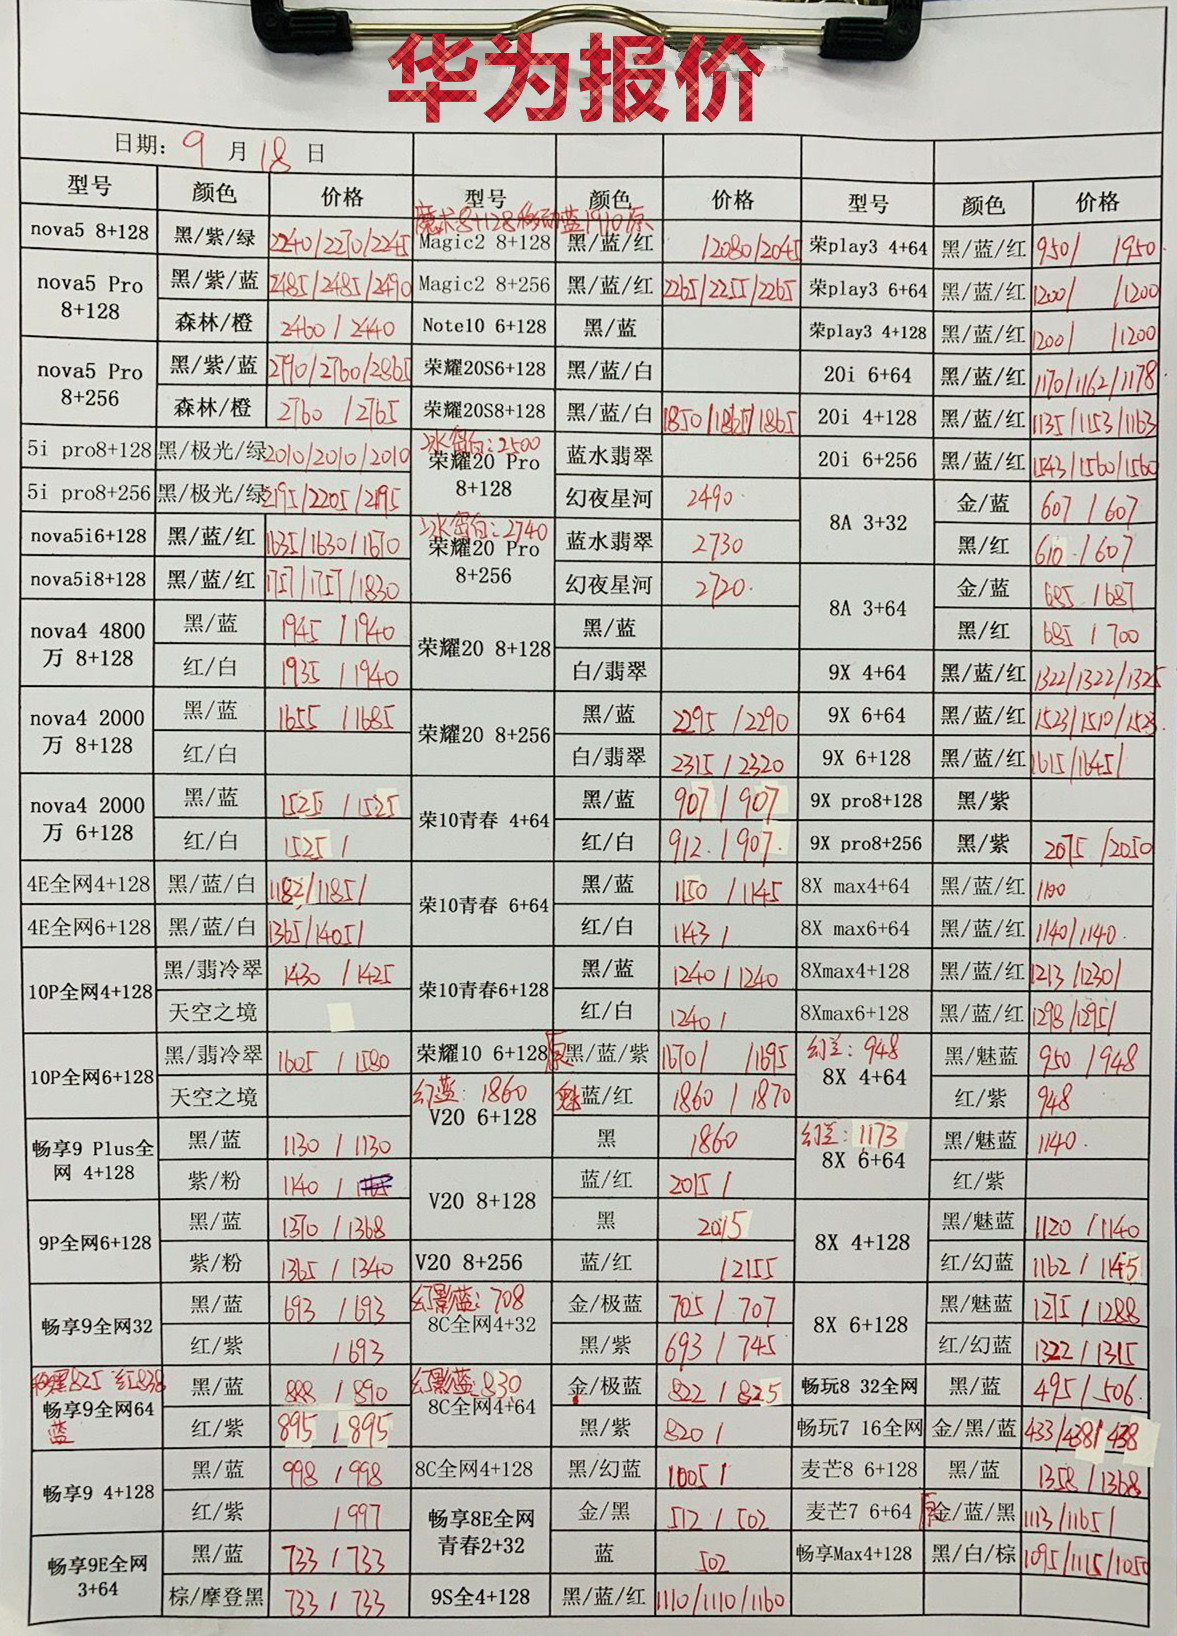 华为报价
日期: 9 月 18 日
型号 颜色 价格 型号 颜色 价格 型号 颜色 价格
nova5 8+128 黑/紫/绿 2240/2270/2245
nova5 Pro 8+128 黑/紫/蓝 2485/2485/2490
森林/橙 2460 / 2440
nova5 Pro 8+256 黑/紫/蓝 2790/2760/2865
森林/橙 2760 /2765
5i pro8+128 黑/极光/绿 2010/2010/2010
5i pro8+256 黑/极光/绿 2195/2205/2195
nova5i6+128 黑/蓝/红 1635/1630/1670
nova5i8+128 黑/蓝/红 1757/1757/1830
nova4 4800万 8+128 黑/蓝 1945 /1940
红/白 1935 /1940
nova4 2000万 8+128 黑/蓝 1655 /1685
红/白
nova4 2000万 6+128 黑/蓝 1525 /1525
红/白 1525 /
4E全网4+128 黑/蓝/白 1182/1185/
4E全网6+128 黑/蓝/白 1365/1405/
10P全网4+128 黑/翡冷翠 1430 /1425
天空之境
10P全网6+128 黑/翡冷翠 1605 /1580
天空之境
畅享9 Plus全网 4+128 黑/蓝 1130 /1130
紫/粉 1140 /
9P全网6+128 黑/蓝 1370 /1368
紫/粉 1365 /1340
畅享9全网32 黑/蓝 693 /693
红/紫 /693
黑825 红838
畅享9全网64 黑/蓝 888 /890
蓝 红/紫 895 /895
畅享9 4+128 黑/蓝 998 /998
红/紫 /997
畅享9E全网 3+64 黑/蓝 733 /733
棕/摩登黑 733 / 733
魔术8+128移动蓝1910原
Magic2 8+128 黑/蓝/红 /2080/2045
Magic2 8+256 黑/蓝/红 2265/2255/2265
Note10 6+128 黑/蓝
荣耀20S6+128 黑/蓝/白
荣耀20S8+128 黑/蓝/白 1850/1865/1865
冰岛白:2500
荣耀20 Pro 8+128 蓝水翡翠
幻夜星河 2490
冰岛白:2740
荣耀20 Pro 8+256 蓝水翡翠 2730
幻夜星河 2720
荣耀20 8+128 黑/蓝
白/翡翠
荣耀20 8+256 黑/蓝 2295 /2290
白/翡翠 2315 /2320
荣10青春 4+64 黑/蓝 907 / 907
红/白 912 / 907
荣10青春 6+64 黑/蓝 1150 /1145
红/白 1143 /
荣10青春6+128 黑/蓝 1240 /1240
红/白 1240 /
荣耀10 6+128 原 黑/蓝/紫 1670/ /1695
幻蓝: 1860
V20 6+128 魅蓝/红 1860 / 1870
黑 1860
V20 8+128 蓝/红 2015 /
黑 2015
V20 8+256 蓝/红 /2155
幻影蓝: 708
8C全网4+32 金/极蓝 705 / 707
黑/紫 693 / 745
幻影蓝: 830
8C全网4+64 金/极蓝 822 /825
黑/紫 820 /
8C全网4+128 黑/幻蓝 1005 /
畅享8E全网 青春2+32 金/黑 512 / 502
蓝 502
9S全4+128 黑/蓝/红 1110/1110/1160
荣play3 4+64 黑/蓝/红 950/ /950
荣play3 6+64 黑/蓝/红 1200/ /1200
荣play3 4+128 黑/蓝/红 1200/ /1200
20i 6+64 黑/蓝/红 1170/1162/1178
20i 4+128 黑/蓝/红 1135/1153/1163
20i 6+256 黑/蓝/红 1543/1560/1560
8A 3+32 金/蓝 607 /607
黑/红 610 /607
8A 3+64 金/蓝 685 /687
黑/红 685 /700
9X 4+64 黑/蓝/红 1322/1322/1325
9X 6+64 黑/蓝/红 1523/1510/1523
9X 6+128 黑/蓝/红 1615/1645/
9X pro8+128 黑/紫
9X pro8+256 黑/紫 2075 /2050
8X max4+64 黑/蓝/红 1100
8X max6+64 黑/蓝/红 1140/1140
8Xmax4+128 黑/蓝/红 1213/1230/
8Xmax6+128 黑/蓝/红 1298/1295/
幻兰: 948
8X 4+64 黑/魅蓝 950 /948
红/紫 948
幻兰: 1173
8X 6+64 黑/魅蓝 1140
红/紫
8X 4+128 黑/魅蓝 1120 /1140
红/幻蓝 1162 / 1145
8X 6+128 黑/魅蓝 1275 /1288
红/幻蓝 1322 / 1315
畅玩8 32全网 黑/蓝 495/506
畅玩7 16全网 金/黑/蓝 433/438/438
麦芒8 6+128 黑/蓝 1358 /1368
麦芒7 6+64 原 金/蓝/黑 1113/1165/
畅享Max4+128 黑/白/棕 1095/1115/1050